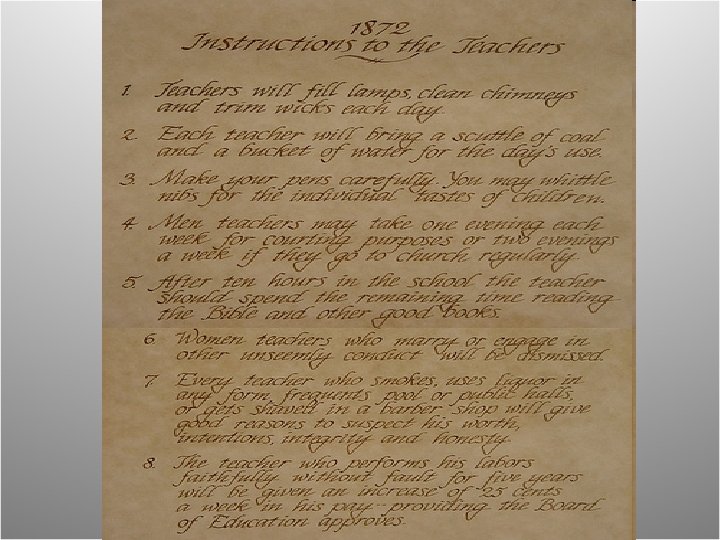 1872
Instructions to the Teachers
1. Teachers will fill lamps, clean chimneys
and trim wicks each day.
2. Each teacher will bring a scuttle of coal
and a bucket of water for the day's use.
3. Make your pens carefully. You may whittle
nibs for the individual tastes of children.
4. Men teachers may take one evening each
week for courting purposes or two evenings
a week if they go to church regularly.
5. After ten hours in the school the teacher
should spend the remaining time reading
the Bible and other good books.
6. Women teachers who marry or engage in
other unseemly conduct will be dismissed.
7. Every teacher who smokes, uses liquor in
any form, frequents pool or public halls,
or gets shaved in a barber shop will give
good reasons to suspect his worth,
intentions, integrity and honesty.
8. The teacher who performs his labors
faithfully without fault for five years
will be given an increase of 25 cents
a week in his pay--providing the Board
of Education approves.